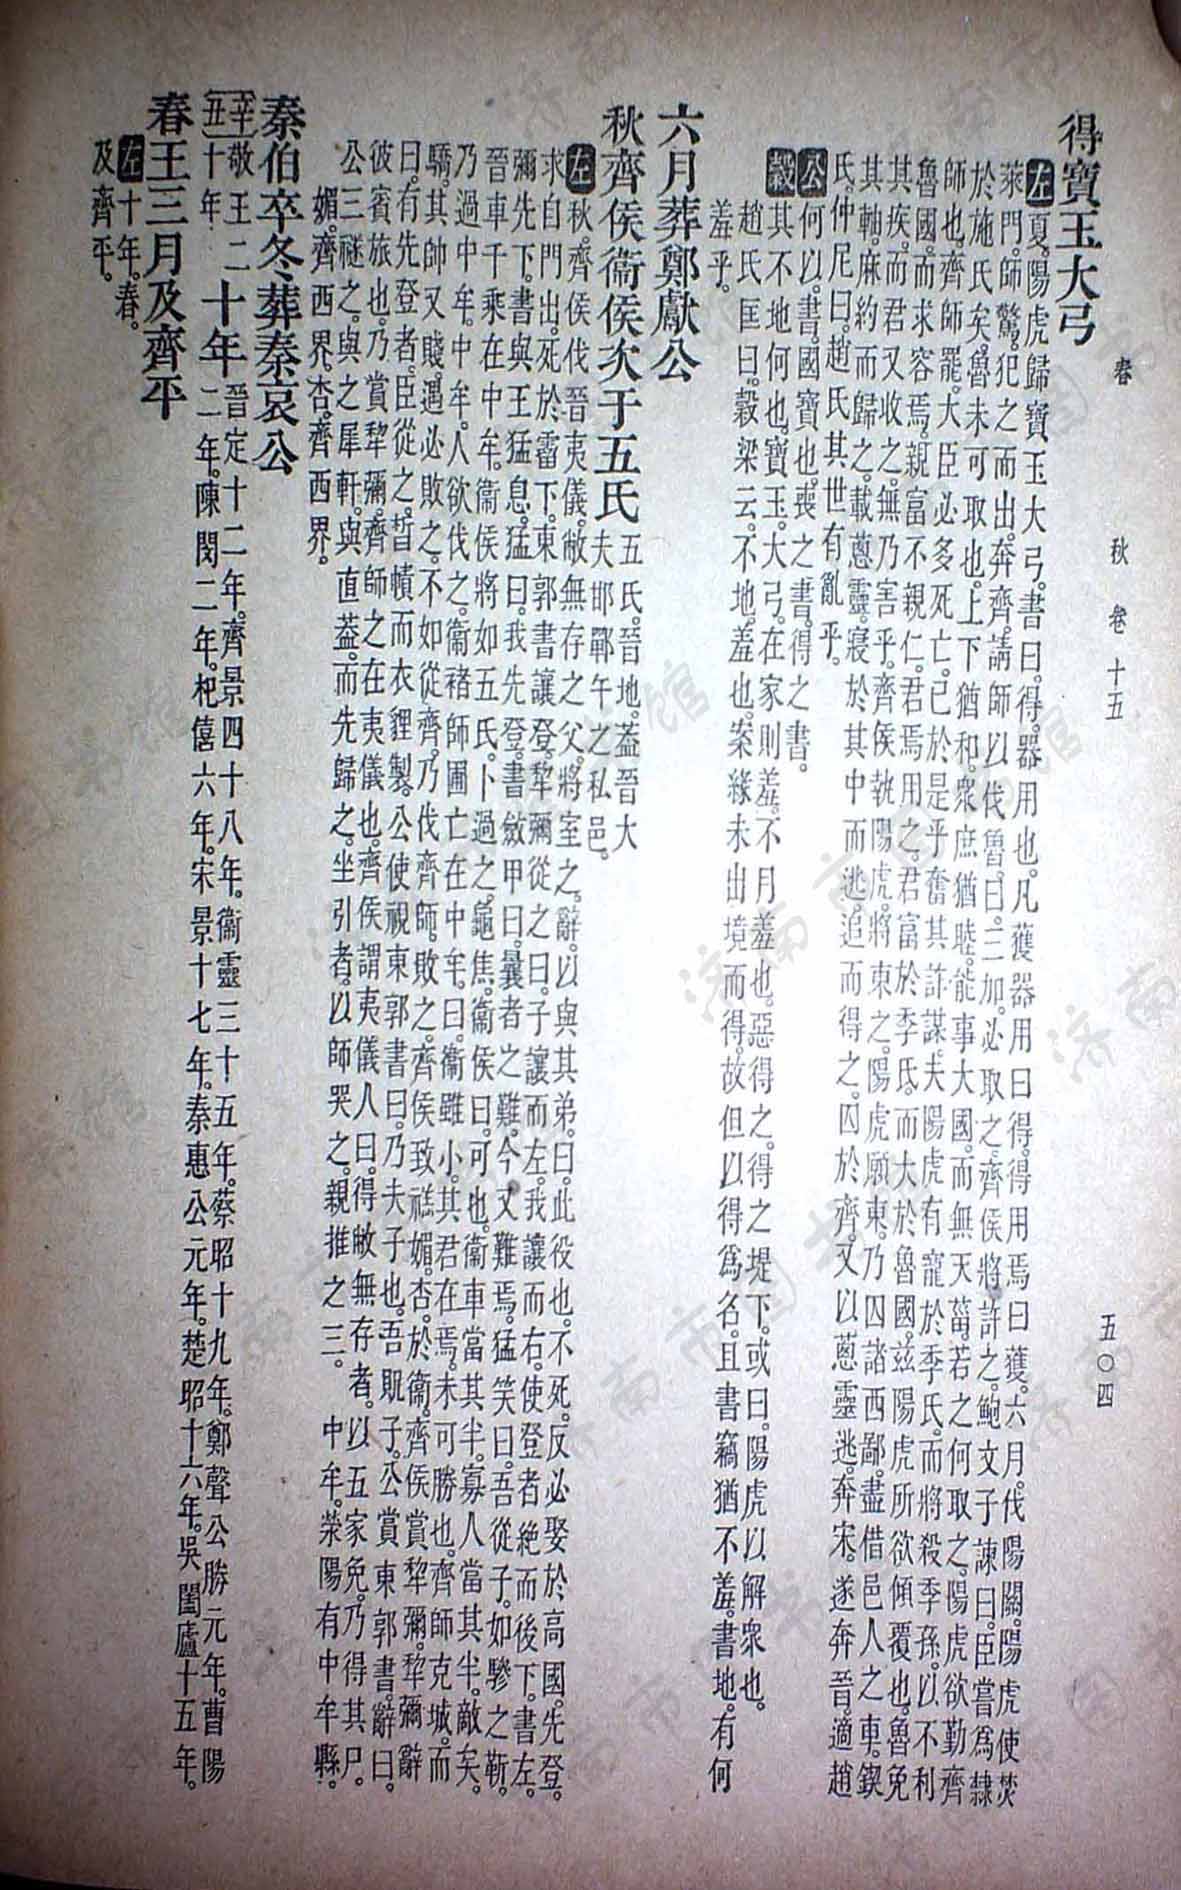 春　秋　卷十五　五〇四
得寶玉大弓
左夏。陽虎歸寶玉大弓。書曰。得。器用也。凡獲器用曰得。得用焉曰獲。六月。伐陽關。陽虎使焚
萊門。師驚。犯之而出。奔齊。請師以伐魯。曰。三加。必取之。齊侯將許之。鮑文子諫曰。臣嘗爲隸
於施氏矣。魯未可取也。上下猶和。衆庶猶睦。能事大國。而無天菑。若之何取之。陽虎欲勤齊
師也。齊師罷。大臣必多死亡。已於是乎奮其詐謀。夫陽虎有寵於季氏。而將殺季孫。以不利
魯國。而求容焉。親富不親仁。君焉用之。君富於季氏。而大於魯國。兹陽虎所欲傾覆也。魯免
其疾。而君又收之。無乃害乎。齊侯執陽虎。將東之。陽虎願東。乃囚諸西鄙。盡借邑人之車。鍥
其軸。麻約而歸之。載蔥靈。寢於其中而逃。追而得之。囚於齊。又以蔥靈逃。奔宋。遂奔晉。適趙
氏。仲尼曰。趙氏其世有亂乎。
公何以書。國寶也。喪之書。得之書。
穀其不地何也。寶玉。大弓。在家則羞。不月羞也。惡得之。得之堤下。或曰。陽虎以解衆也。
趙氏匡曰。穀梁云。不地。羞也。案緣未出境而得。故但以得爲名。且書竊猶不羞。書地。有何
羞乎。
六月葬鄭獻公
秋齊侯衞侯次于五氏 五氏。晉地。蓋晉大
夫邯鄲午之私邑。
左秋。齊侯伐晉夷儀。敝無存之父。將室之。辭。以與其弟。曰。此役也。不死。反必娶於高國。先登。
求自門出。死於霤下。東郭書讓登。犂彌從之。曰。子讓而左。我讓而右。使登者絕而後下。書左。
彌先下。書與王猛息。猛曰。我先登。書斂甲曰。曩者之難。今又難焉。猛笑曰。吾從子。如驂之靳。
晉車千乘在中牟。衞侯將如五氏。卜過之。龜焦。衞侯曰。可也。衞車當其半。寡人當其半。敵矣。
乃過中牟。中牟人欲伐之。衞褚師圃亡在中牟。曰。衞雖小。其君在焉。未可勝也。齊師克城。而
驕。其帥又賤。遇必敗之。不如從齊。乃伐齊師。敗之。齊侯致禚媚。杏。於衞。齊侯賞犂彌。犂彌辭
曰。有先登者。臣從之。晳幘而衣貍製。公使視東郭書曰。乃夫子也。吾貺子。公賞東郭書。辭曰。
彼賓旅也。乃賞犂彌。齊師之在夷儀也。齊侯謂夷儀人曰。得敝無存者。以五家免。乃得其尸。
公三襚之。與之犀軒。與直蓋。而先歸之。坐引者。以師哭之。親推之三。 中牟。滎陽有中牟縣。
媚。齊西界。杏。齊西界。
秦伯卒冬葬秦哀公
辛敬王二十年 晉定十二年。齊景四十八年。衞靈三十五年。蔡昭十九年。鄭聲公勝元年。曹陽
丑十年 二年。陳閔二年。杞僖六年。宋景十七年。秦惠公元年。楚昭十六年。吳闔廬十五年。
春王三月及齊平
左十年。春。
及齊平。